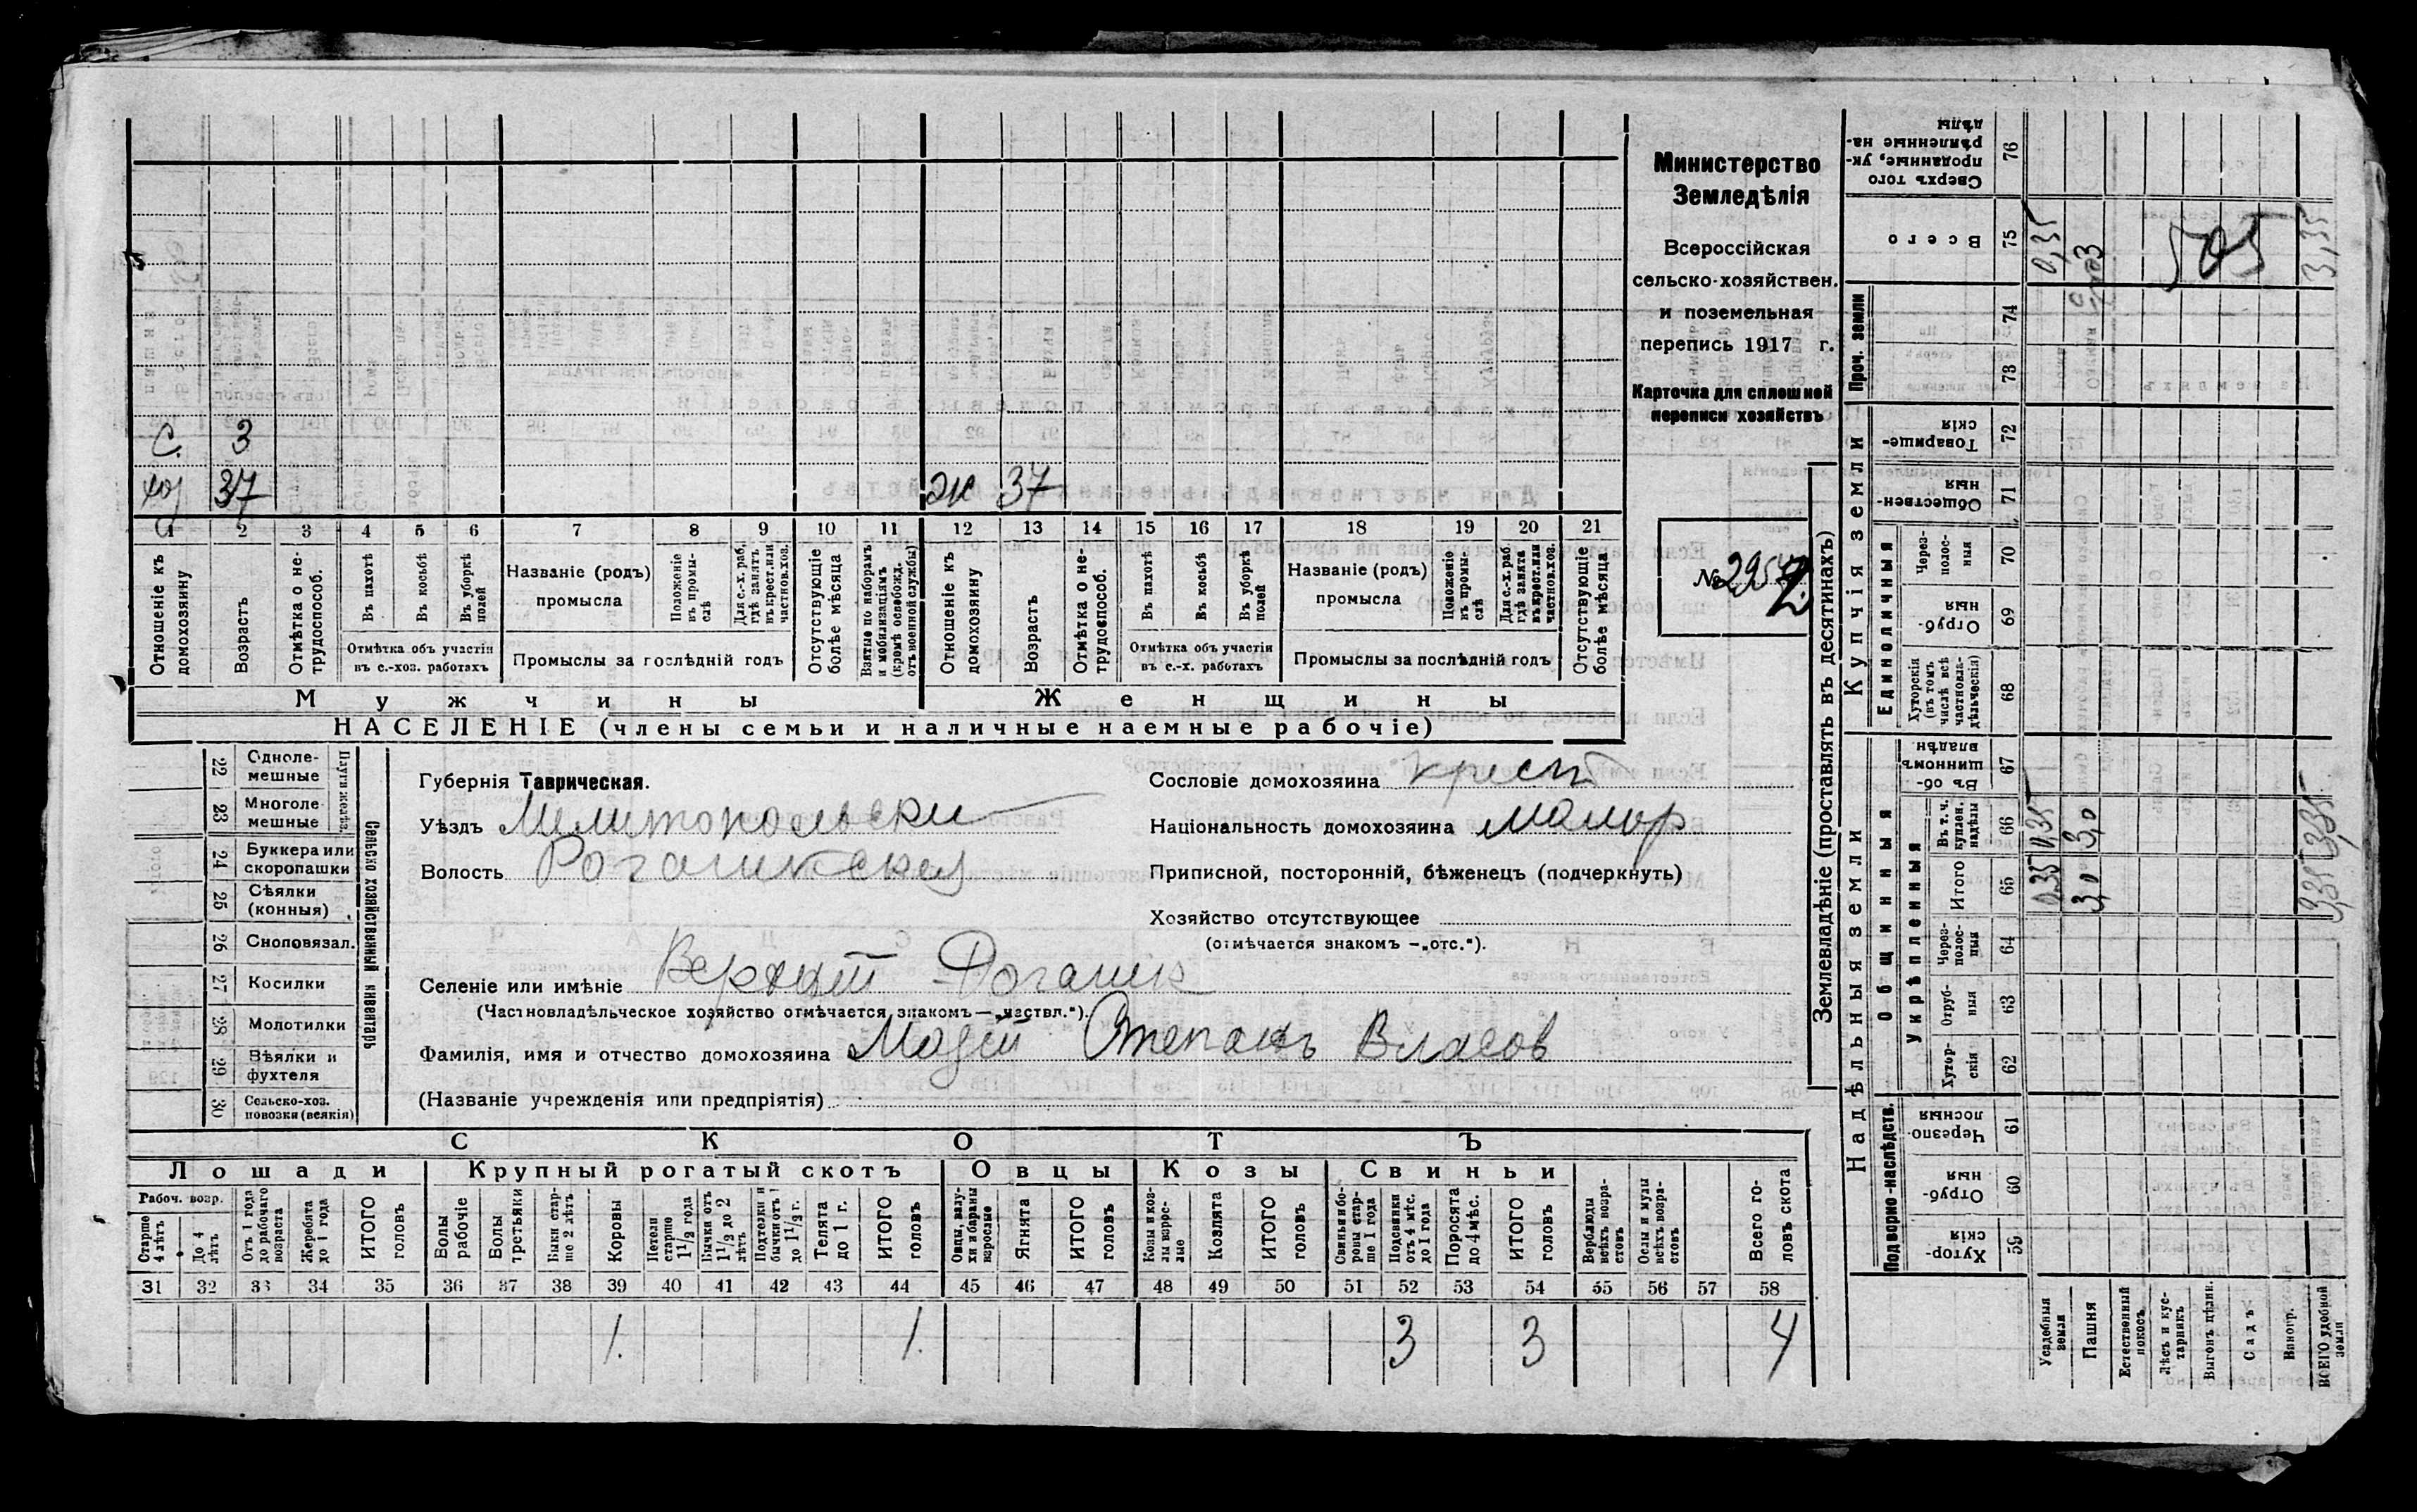 С. 3
хоз 37 ж 37
1 2 3 4 5 6 7 8 9 10 11 12 13 14 15 16 17 18 19 20 21
Отношеніе къ домохозяину
Возрастъ
Отмѣтка о не-трудоспособ.
Въ пахотѣ
Въ косьбѣ
Въ уборкѣ полей
Отмѣтка объ участіи
въ с.-хоз. работахъ
Названіе (родъ)
промысла
Положеніе въ промы-слѣ
Для с.-х. раб. гдѣ занятъ въ крест. или частнов. хоз.
Промыслы за послѣдній годъ
Отсутствующіе болѣе мѣсяца
Взятые по наборамъ и мобилизаціямъ (кромѣ освобожд. отъ военной службы)
Отношеніе къ домохозяину
Возрастъ
Отмѣтка о не-трудоспособ.
Въ пахотѣ
Въ косьбѣ
Въ уборкѣ полей
Отмѣтка объ участіи
въ с.-х. работахъ
Названіе (родъ)
промысла
Положеніе въ промы-слѣ
Для с.-х. раб. гдѣ занята въ крест. или частнов. хоз.
Промыслы за послѣдній годъ
Отсутствующіе болѣе мѣсяца
Мужчины Женщины
НАСЕЛЕНІЕ (члены семьи и наличные наемные рабочіе)
Министерство
Земледѣлія
Всероссійская
сельско-хозяйствен.
и поземельная
перепись 1917 г.
Карточка для сплошной
переписи хозяйствъ
№
22 Однолемешные
23 Многолемешные
Плуги желѣз.
24 Буккера или скоропашки
25 Сѣялки (конныя)
26 Сноповязал.
27 Косилки
28 Молотилки
29 Вѣялки и фухтеля
30 Сельско-хоз. повозки (всякія)
Сельско хозяйственный инвентарь
Губернія Таврическая.
Уѣздъ Мелитопольски
Волость Рогачикская
Сословіе домохозяина крест
Національность домохозяина малор
Приписной, посторонній, бѣженецъ (подчеркнуть)
Хозяйство отсутствующее
(отмѣчается знакомъ —„отс.“).
Селеніе или имѣніе Верхній Рогачик
(Частновладѣльческое хозяйство отмѣчается знакомъ—„частвл.“).
Фамилія, имя и отчество домохозяина Степанъ Власов
(Названіе учрежденія или предпріятія)
СКОТЪ
Лошади Крупный рогатый скотъ Овцы Козы Свиньи
Рабоч. возр.
Старше 4 лѣтъ
До 4 лѣтъ
Отъ 1 года до рабочаго возраста
Жеребята до 1 года
ИТОГО головъ
Волы рабочіе
Волы третьяки
Быки старше 2 лѣтъ
Коровы
Нетели старше 1 1/2 года
Бычки отъ 1 1/2 до 2 лѣтъ
Подтелки и бычки отъ 1 до 1 1/2 г.
Телята до 1 г.
ИТОГО головъ
Овцы, валухи и бараны взрослые
Ягнята
ИТОГО головъ
Козы и козлы взрослые
Козлята
ИТОГО головъ
Свиньи и боровы старше 1 года
Подсвинки отъ 4 мѣс. до 1 года
Поросята до 4 мѣс.
ИТОГО головъ
Верблюды всѣхъ возрастовъ
Ослы и мулы всѣхъ возрастовъ
Всего головъ скота
31 32 33 34 35 36 37 38 39 40 41 42 43 44 45 46 47 48 49 50 51 52 53 54 55 56 57 58
1. 1. 3 3 4
Землевладѣніе (проставлять въ десятинахъ)
Сверхъ того проданные, укрѣпленные надѣлы 76
Всего 75 0,35 3 505 3,35
Проч. земли 74 73
Купчія земли
Товарищескія 72
Общественныя 71
Единоличныя
Черезполосныя 70
Отрубныя 69
Хуторскія (въ томъ числѣ всѣ частновладѣльческія) 68
Надѣльныя земли
Общинныя
Въ общинномъ владѣн. 67
Укрѣпленныя
Въ т. ч. куплен. надѣлы 66 0,35 3,0 3,35
Итого 65 0,35 3,0 3,35
Черезполосныя 64
Отрубныя 63
Хуторскія 62
Подворно-наслѣдств.
Черезполосныя 61
Отрубныя 60
Хуторскія 59
Усадебныя земли
Пашня
Естественный покосъ
Лѣсъ и кустарникъ
Выгонъ цѣлин.
Садъ
Виногр.
ВСЕГО удобной земли